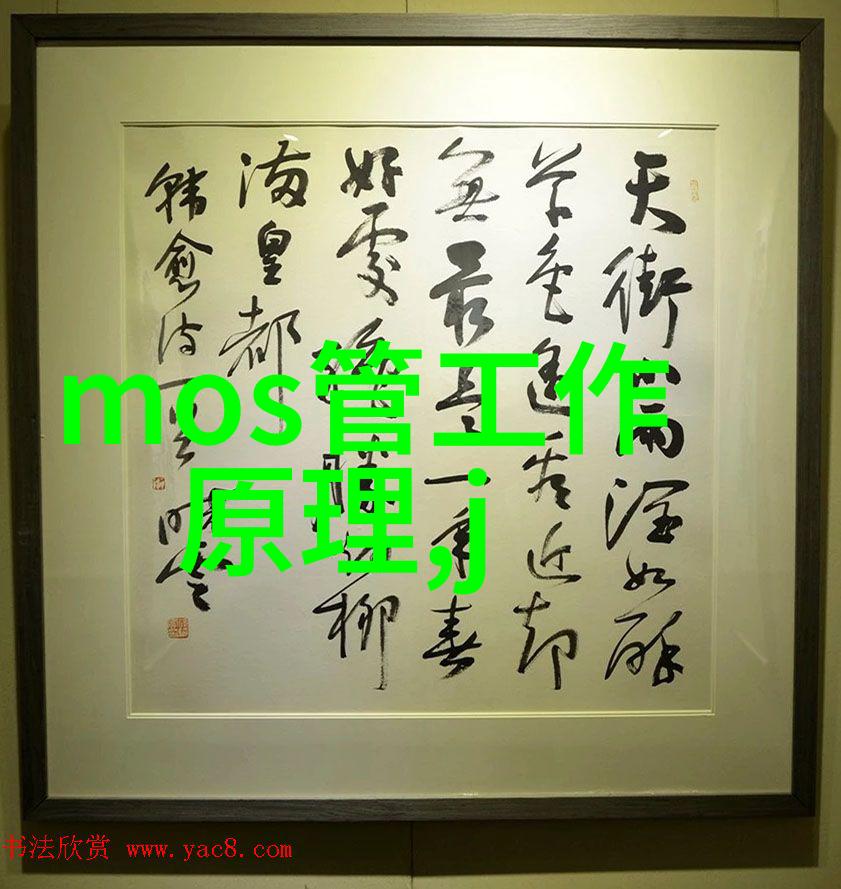 天街小雨潤如酥
草色遥看近却
無最是一年春
好處絶勝烟柳
滿皇都
韓愈诗一首
mos管工作
原理,j
书法欣赏 www.yac8.com